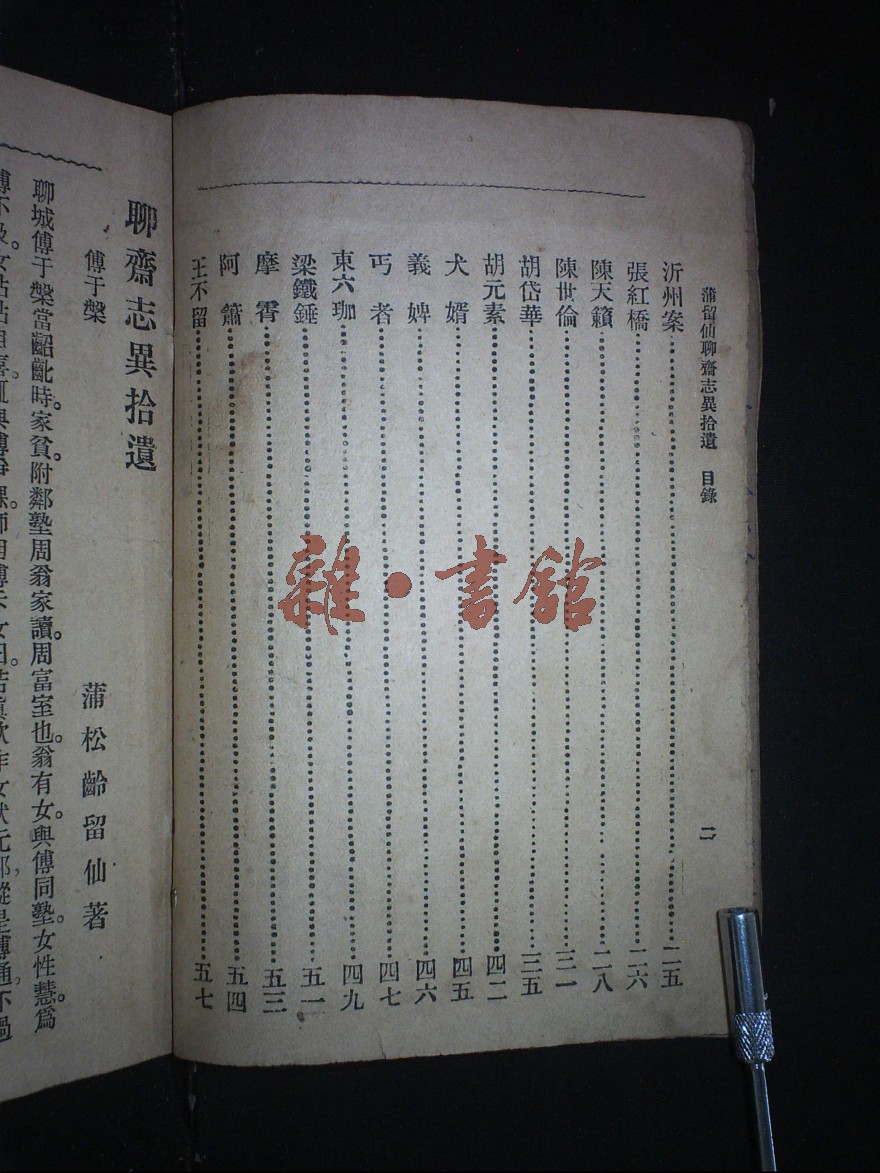 蒲留仙聊齋志異拾遺 目錄 二
沂州案 二五
張紅橋 二六
陳天籟 二八
陳世倫 三一
胡岱華 三五
胡元素 四二
犬婿 四五
義婢 四六
丐者 四七
東六珈 四九
梁鐵錘 五一
摩霄 五三
阿簫 五四
王不留 五七
聊齋志異拾遺
蒲松齡留仙著
傅于槃
聊城傅于槃當齠齔時。家貧。附鄰塾周翁家讀。周富室也。翁有女。與傅同塾。女性慧。爲
雜·書館